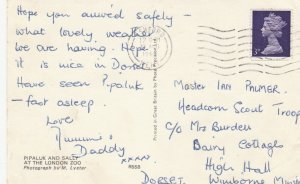 Hope you arrived safely -
what lovely weather
we are having. Hope
it is nice in Dorset.
Have seen Pipaluk
- fast asleep.
Love
Mummy &
Daddy
xxxx
PIPALUK AND SALLY
AT THE LONDON ZOO
Photograph by M. Lyster
RS58
Printed in Great Britain by
Master IAN PALMER.
Headcorn Scout Troop
C/o Mrs Burden
Dairy Cottages
High Hall
Wimborne
DORSET.